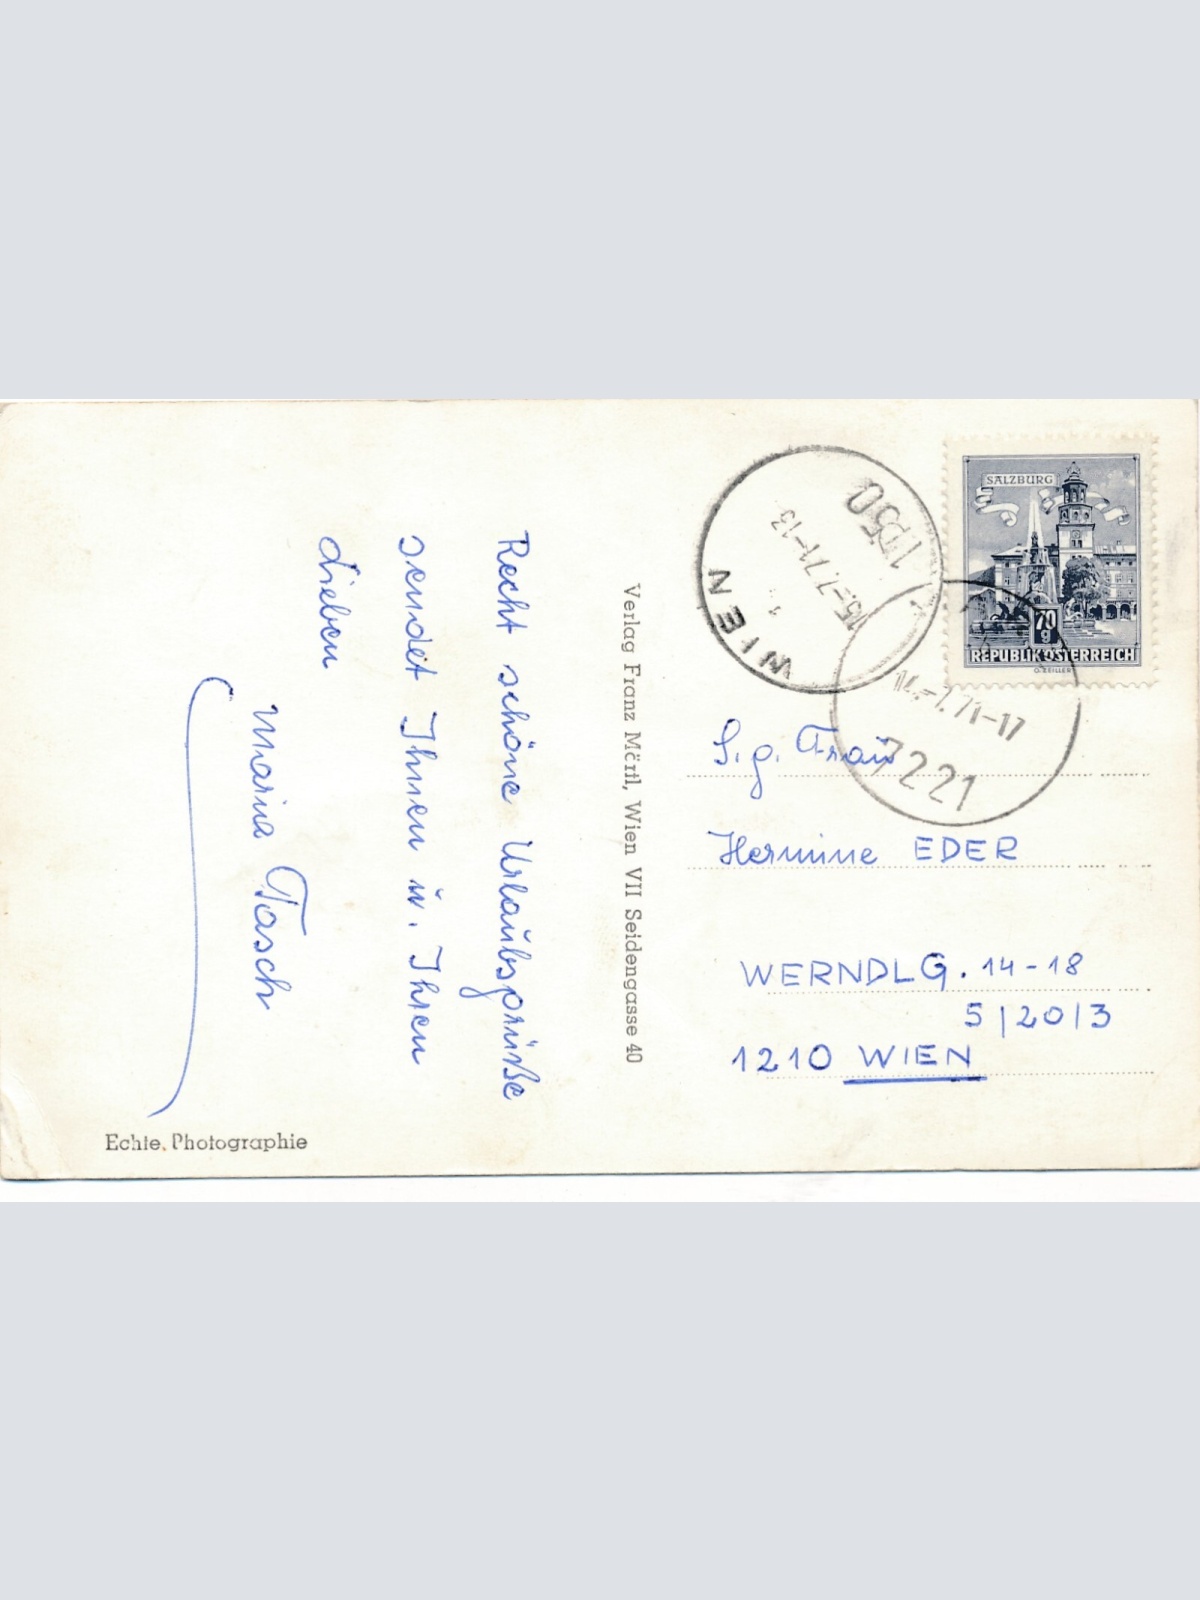 Recht schöne Urlaubsgrüße
sendet Ihnen u. Ihren
Lieben
Maria Tasch
Echte Photographie
Verlag Franz Mörtl, Wien VII Seidengasse 40
WIEN
15.-7.71-13
1
SALZBURG
70
g
REPUBLIK ÖSTERREICH
14.-7.71-17
7221
S.g. Frau
Hermine EDER
WERNDLG. 14-18
5/20/3
1210 WIEN